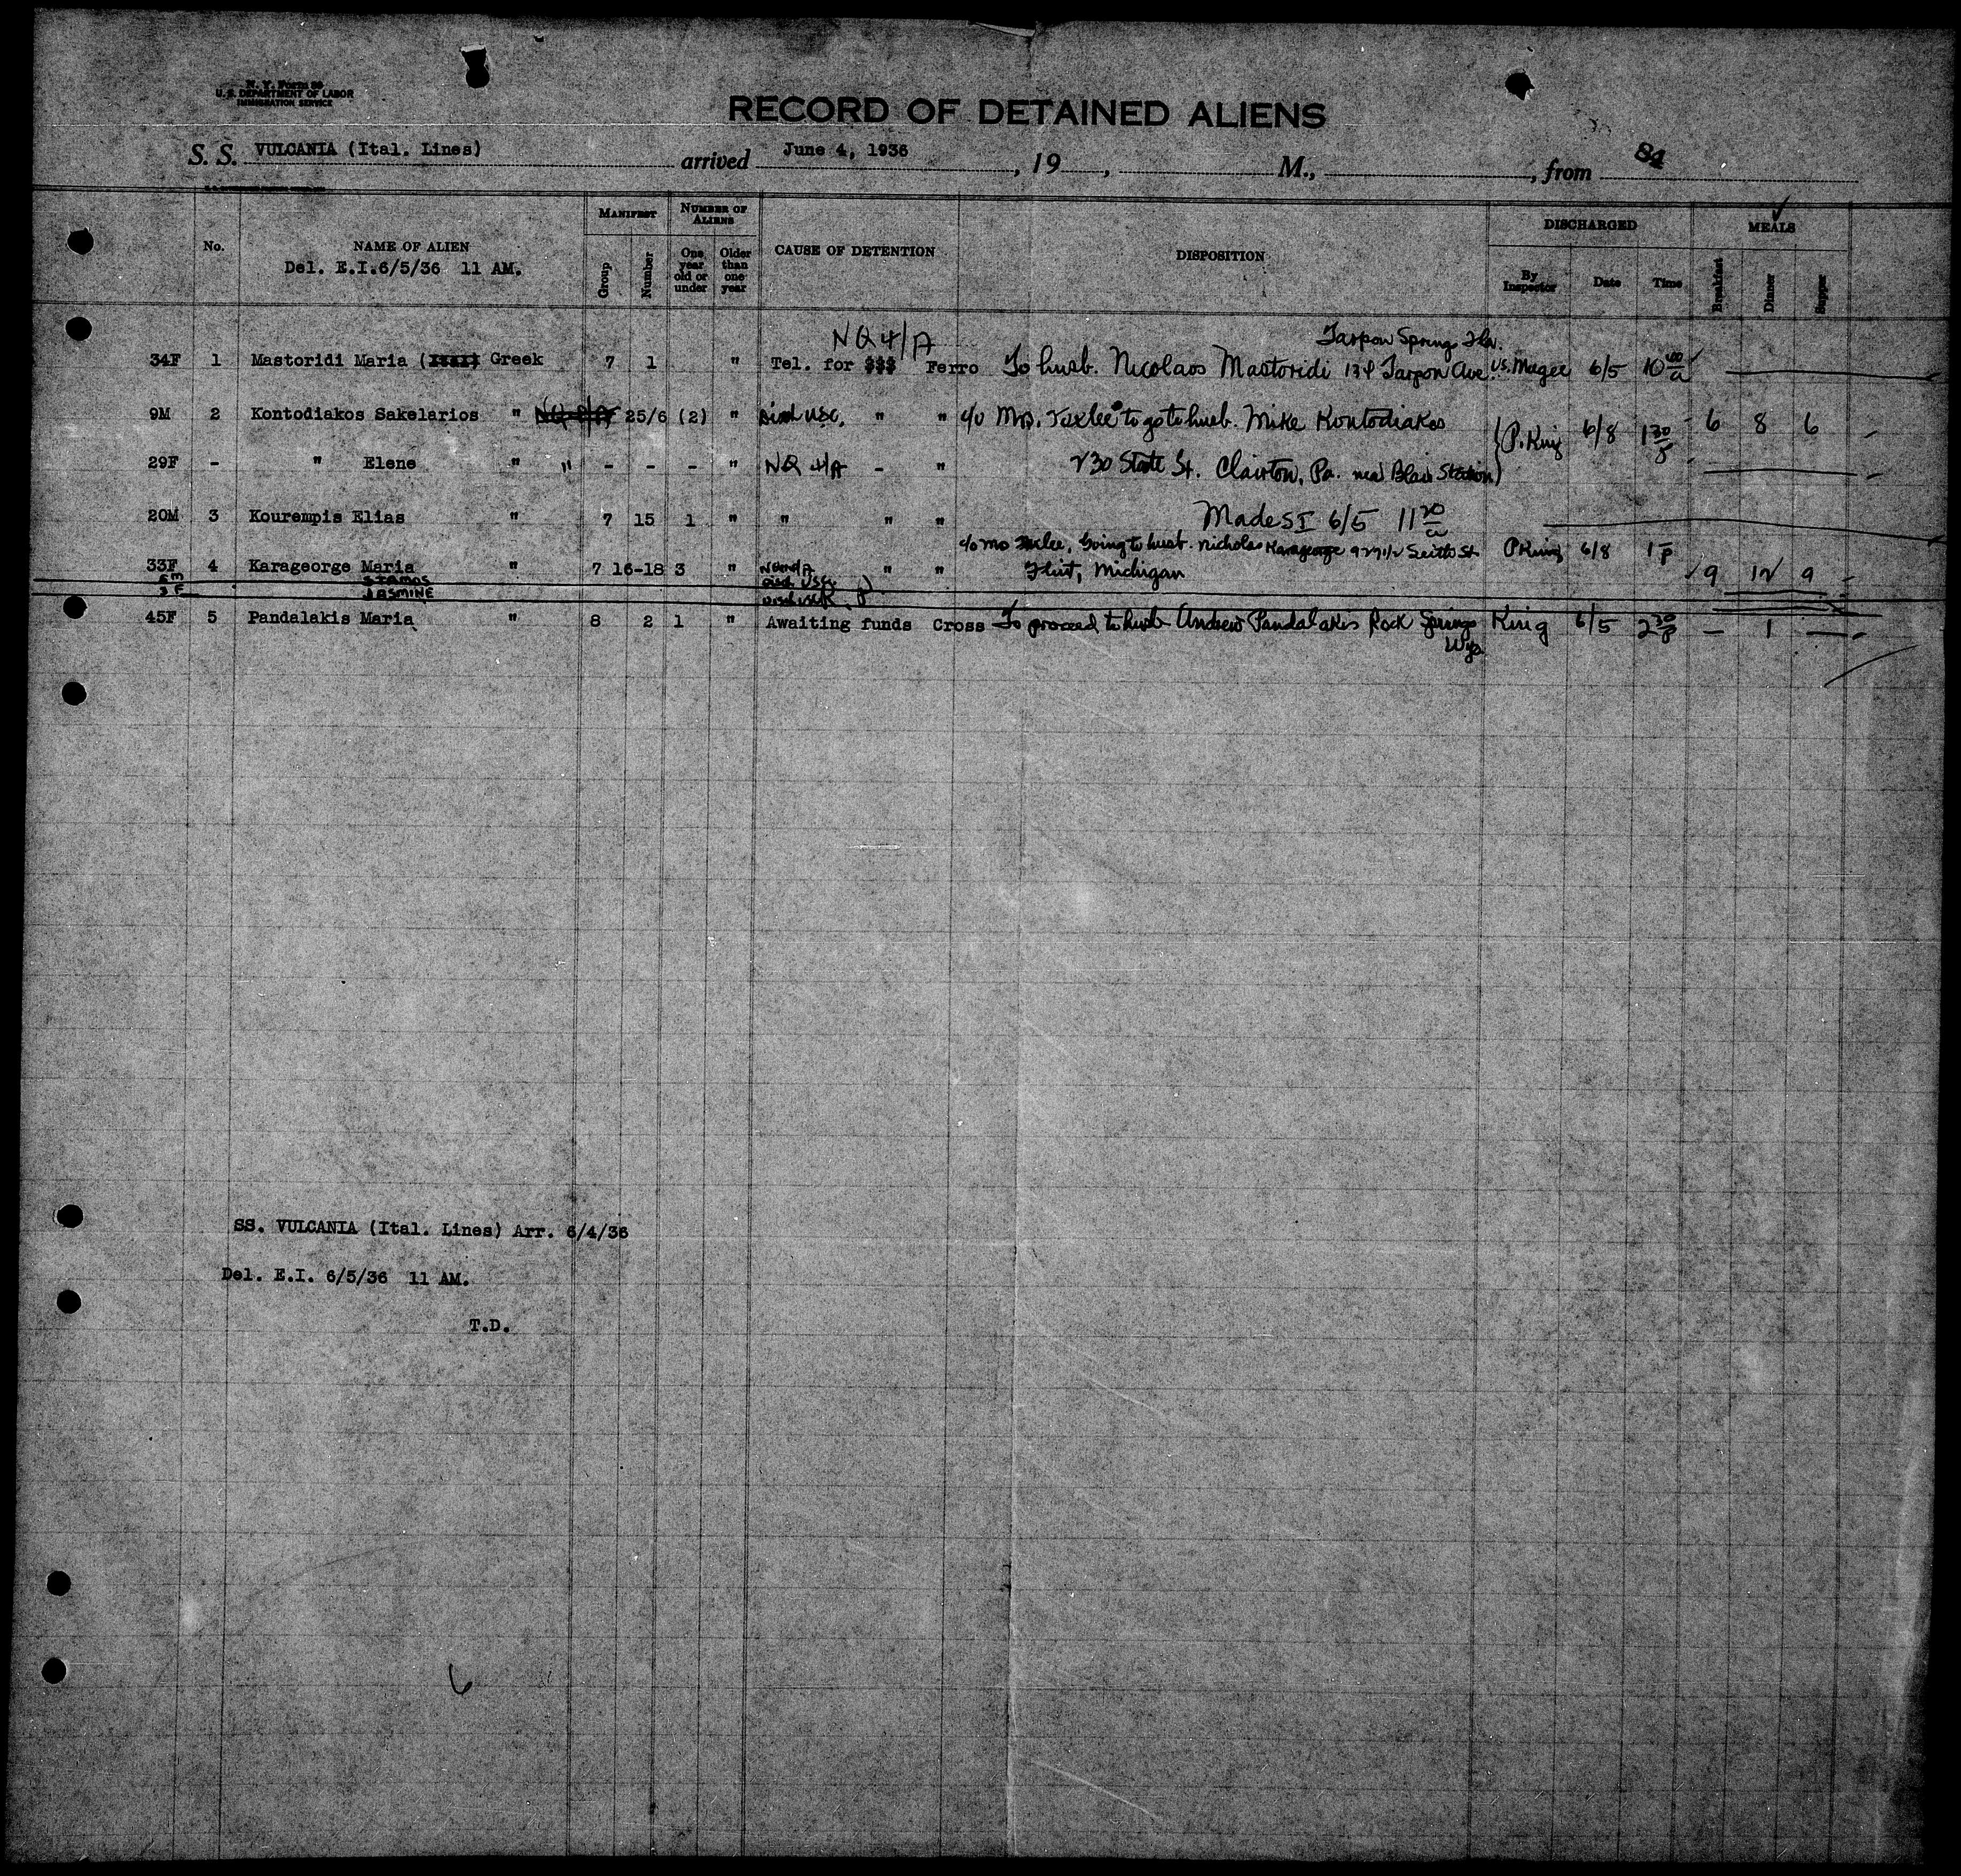 N. Y. Form 80
U. S. DEPARTMENT OF LABOR
IMMIGRATION SERVICE
RECORD OF DETAINED ALIENS
84
S. S. VULCANIA (Ital. Lines) arrived June 4, 1936 , 19 , M., , from
No. NAME OF ALIEN MANIFEST NUMBER OF ALIENS CAUSE OF DETENTION DISPOSITION DISCHARGED MEALS
Del. E.I.6/5/36 11 AM. Group Number One year old or under Older than one year By Inspector Date Time Breakfast Dinner Supper
NQ 4/A Tarpon Spring Fla.
34F 1 Mastoridi Maria (Ital) Greek 7 1 " Tel. for $$$ Ferro To husb. Nicolaos Mastoridi Tarpon Ave. Magee 6/5 10 00 a
9M 2 Kontodiakos Sakelarios " 25/6 (2) " USC. " " c/o Mrs. to go to husb. Mike Kontodiakos P. King 6/8 1 30 p 6 8 6
29F - " Elene " " - - - " NQ 4/A - " 230 State St. Clairton, Pa. near Blair Station
20M 3 Kourempis Elias " 7 15 1 " " " " Made SI 6/5 11 20 a
c/o Going to husb. Nicholas Karageorge St. P King 6/8 1 p
33F 4 Karageorge Maria " 7 16-18 3 " " " Flint, Michigan 9 12 9
5M STAMOS USC
3F JASMINE
45F 5 Pandalakis Maria " 8 2 1 " Awaiting funds Cross To proceed to husb Andrew Pandalakis Rock Springs King 6/5 2 30 p - 1 -
Wyo
SS. VULCANIA (Ital. Lines) Arr. 6/4/36
Del. E.I. 6/5/36 11 AM.
T.D.
6